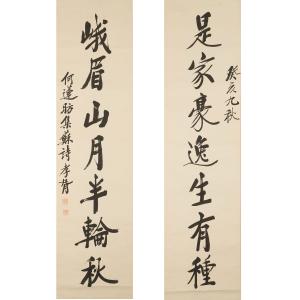 癸亥九秋
是家豪逸生有種
峨眉山月半輪秋
何蘧昉集蘇詩孝胥